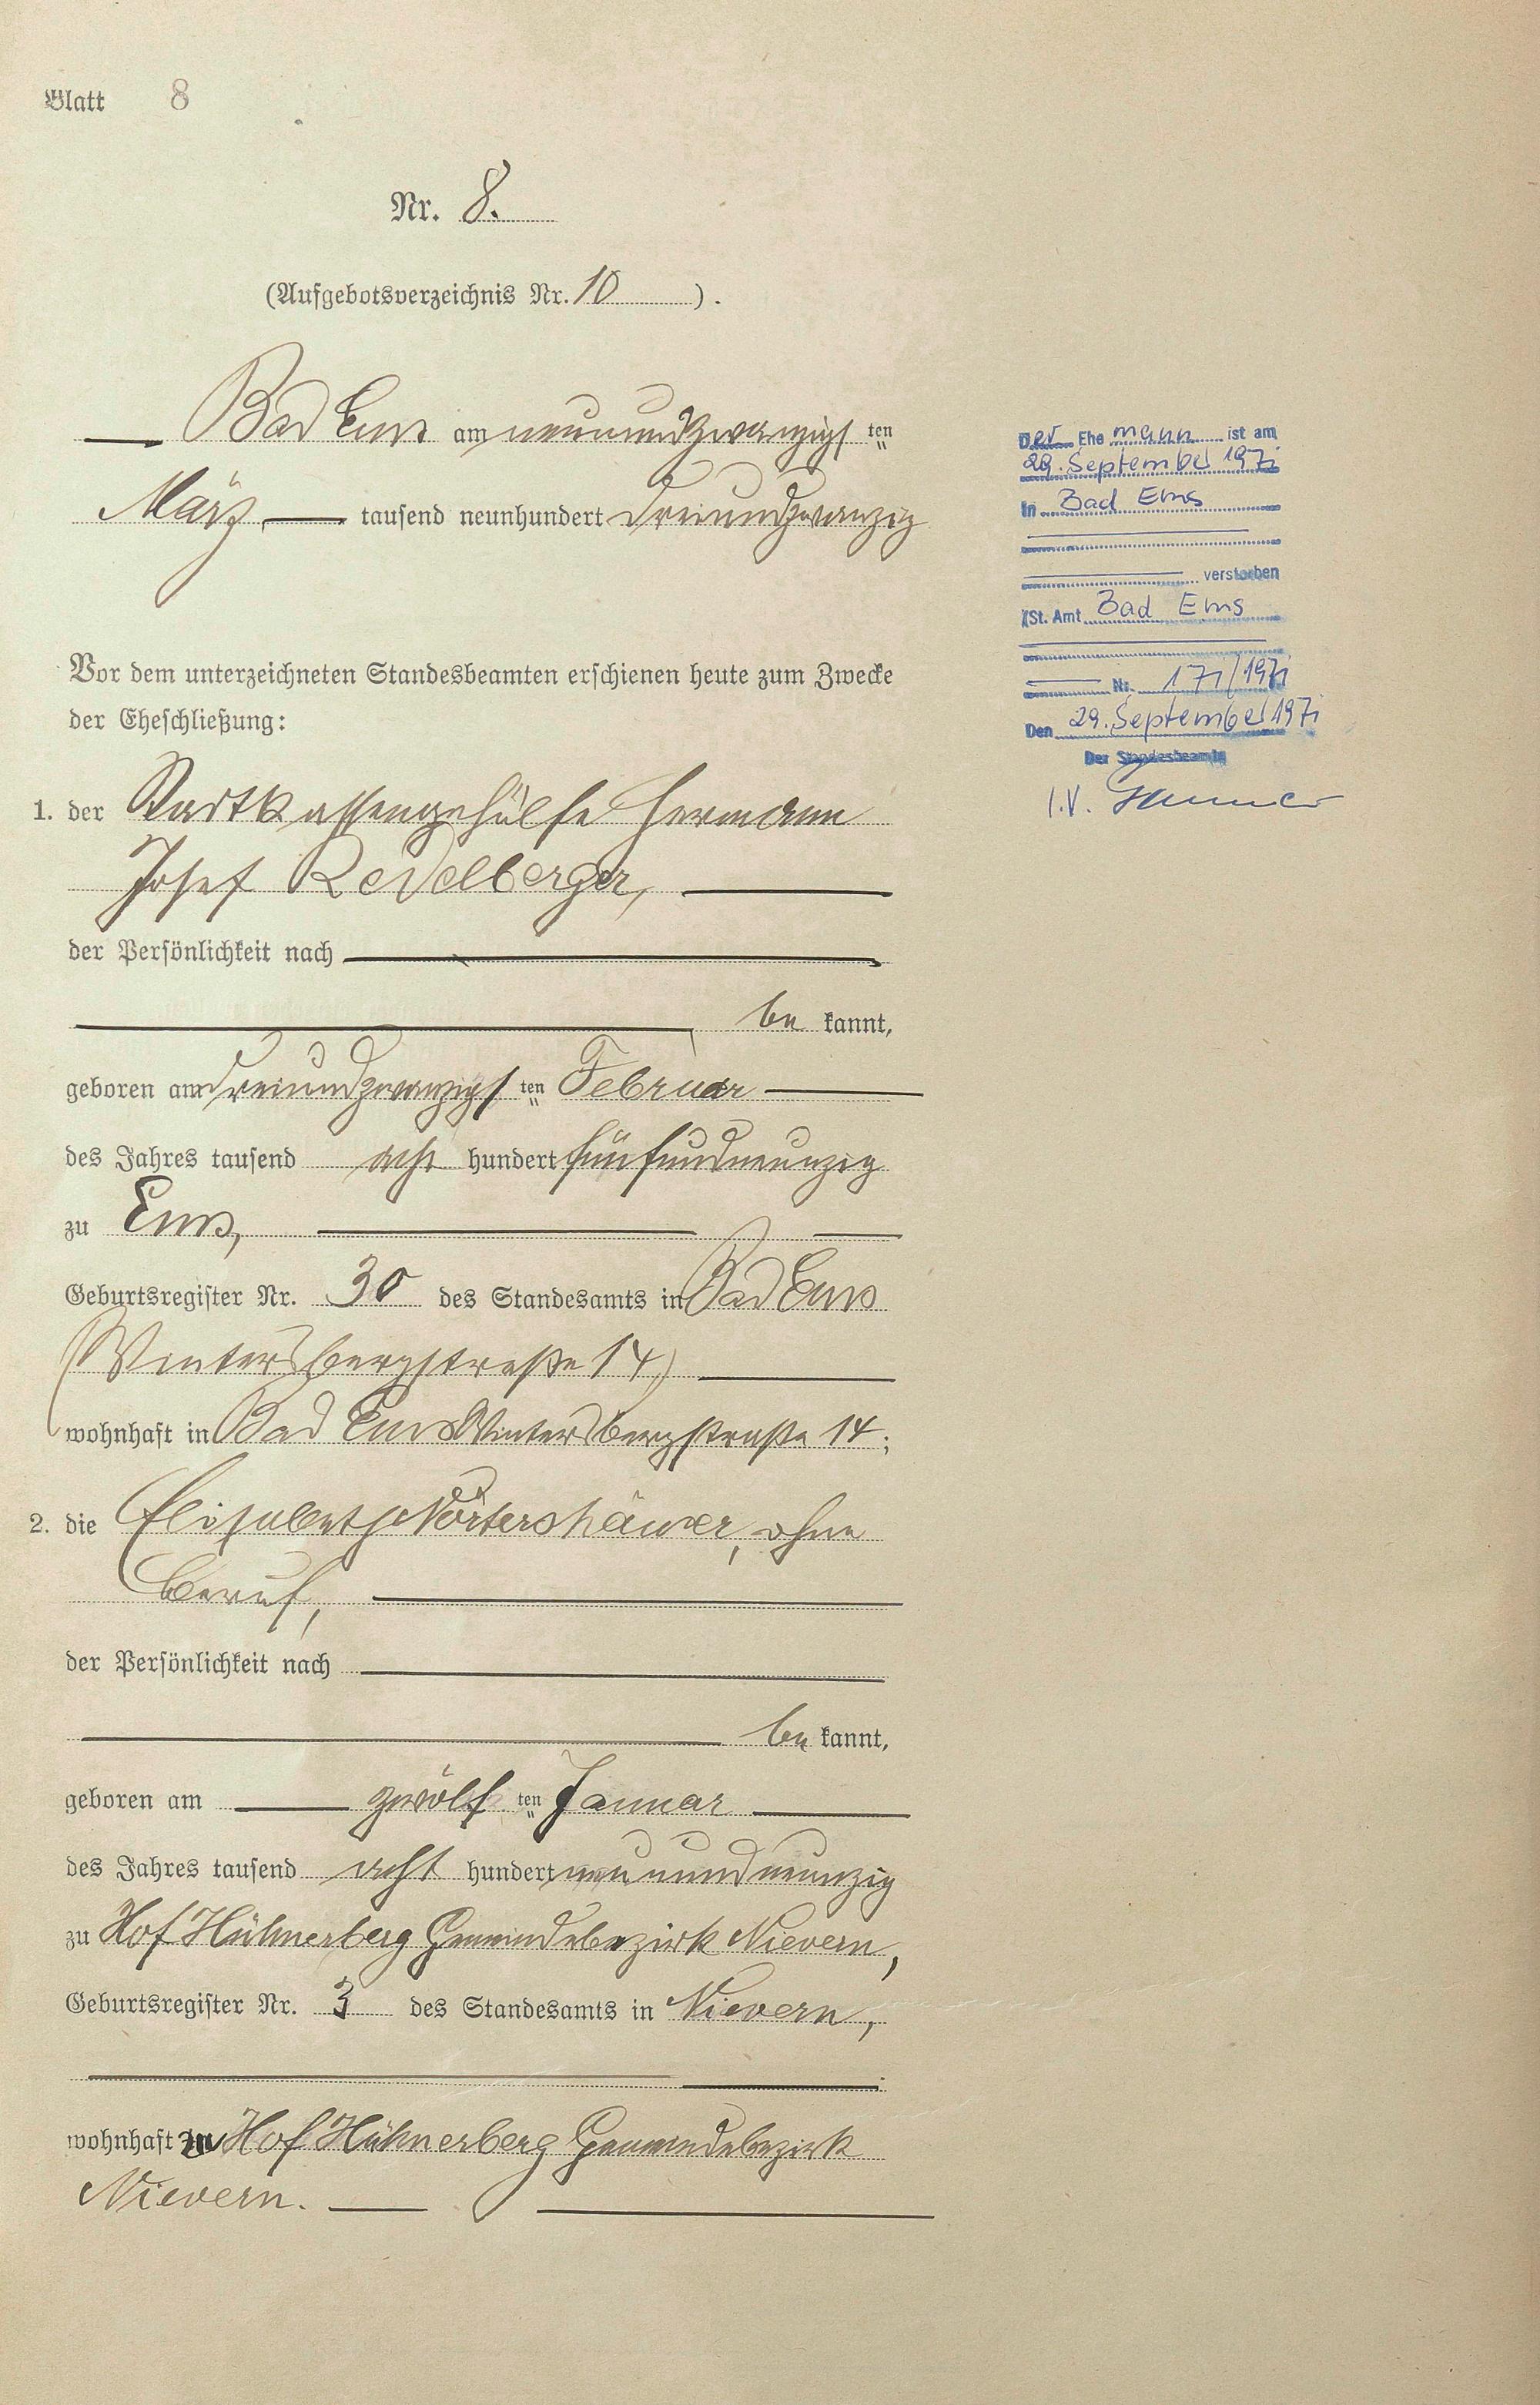 Blatt 8
Nr. 8.
(Aufgebotsverzeichnis Nr. 10 ).
Bad Ems am neunundzwanzigs ten
März tausend neunhundert dreiundzwanzig
Vor dem unterzeichneten Standesbeamten erschienen heute zum Zwecke
der Eheschließung:
1. der Stadtkassengehülfe Hermann
Josef Redelberger,
der Persönlichkeit nach
be kannt,
geboren am dreiundzwanzigs ten Februar
des Jahres tausend acht hundert fünfundneunzig
zu Ems,
Geburtsregister Nr. 30 des Standesamts in Bad Ems
(Wintersbergstraße 14)
wohnhaft in Bad Ems Wintersbergstraße 14;
2. die Elisabeth Nörtershäuser, ohne
Beruf,
der Persönlichkeit nach
be kannt,
geboren am zwölf ten Januar
des Jahres tausend acht hundert neunundneunzig
zu Hof Hühnerberg Gemeindebezirk Nievern,
Geburtsregister Nr. 3 des Standesamts in Nievern,
wohnhaft zu Hof Hühnerberg Gemeindebezirk
Nievern.
Der Ehe mann ist am
29. September 1971
In Bad Ems
verstorben
(St. Amt Bad Ems
Nr. 171/1971
Den 29. September 1971
Der Standesbeamte
I.V.